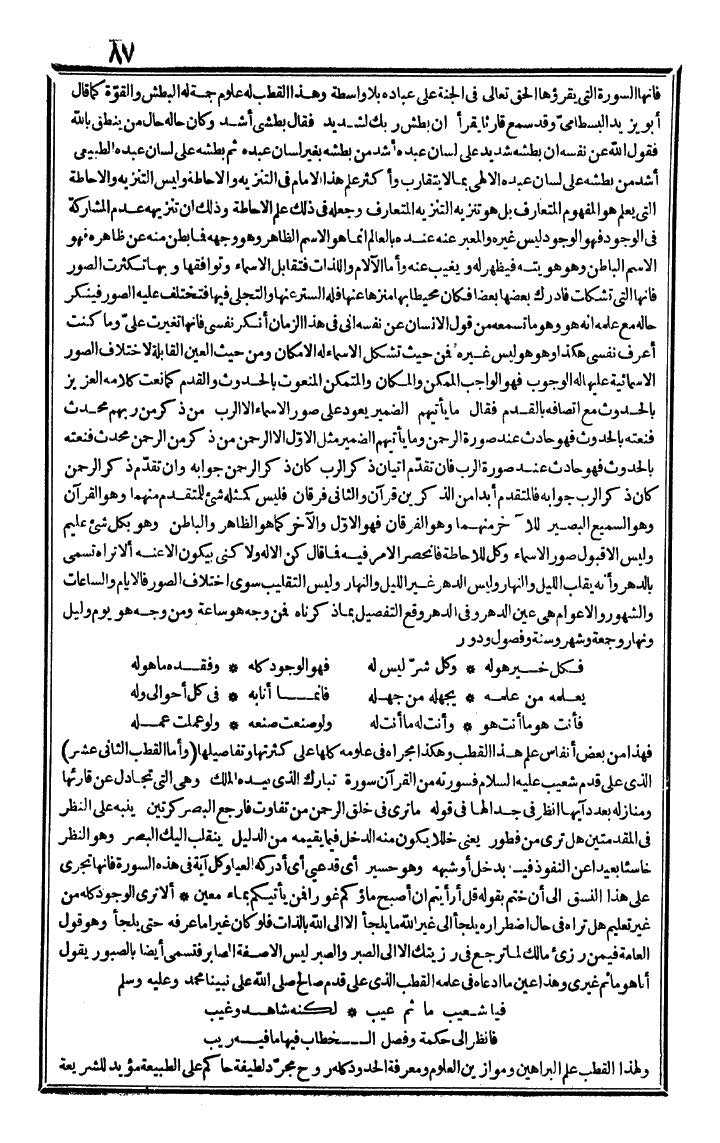 ٨٧
فانها السورة التي يقرؤها الحق تعالى فى الجنة على عباده بلا واسطة وهذا القطب له علوم جمة له البطش والقوّة كما قال
أبو يزيد البسطامىّ وقد سمع قارئا يقرأ ان بطش ربك لشديد فقال بطشى أشد وكان حاله حال من ينطق بالله
فقول الله عن نفسه ان بطشه شديد على لسان عبده أشد من بطشه بغير لسان عبده ثم بطشه على لسان عبده الطبيعى
أشد من بطشه على لسان عبده الالهى بما لا يتقارب وأكثر علم هذا الامام فى التنزيه والاحاطة وليس التنزيه والاحاطة
التى يعلم هو المفهوم المتعارف بل هو تنزيه التنزيه المتعارف وجعله فى ذلك علم الاحاطة وذلك ان تنزيهه عدم المشاركة
فى الوجود فهو الوجود ليس غيره والمعبر عنه عنده بالعالم انما هو الاسم الظاهر وهو وجهه فما بطن منه عن ظاهره فهو
الاسم الباطن وهو هويته فيظهر له ويغيب عنه وأما الآلام واللذات فتقابل الاسماء وتوافقها وبها تكثرت الصور
فانها التى تشكلت فادرك بعضها بعضا فكان محيطا بها منزها عنها فله الستر عنها والتجلى فيها فتختلف عليه الصور فينكر
حاله مع علمه انه هو وهو ما تسمعه من قول الانسان عن نفسه انى فى هذا الزمان أنكر نفسى فانها تغيرت علىّ وما كنت
أعرف نفسى هكذا وهو هو ليس غيره فن حيث تشكل الاسماء له الامكان ومن حيث العين القابلة لاختلاف الصور
الاسمائية عليها له الوجوب فهو الواجب الممكن والمكان والمتمكن المنعوت بالحدوث والقدم كما نعت كلامه العزيز
بالحدوث مع اتصافه بالقدم فقال ما يأتيهم الضمير يعود على صور الاسماء الا الرب من ذكر من ربهم محدث
فنعته بالحدوث فهو حادث عند صورة الرحمن وما يأتيهم الضمير مثل الاوّل الا الرحمن من ذكر من الرحمن محدث فنعته
بالحدوث فهو حادث عند صورة الرب فان تقدّم اتيان ذكر الرب كان ذكر الرحمن جوابه وان تقدّم ذكر الرحمن
كان ذكر الرب جوابه فالمتقدم أبدا من الذكرين قرآن والثانى فرقان فليس كمثله شئ للمتقدم منهما وهو القرآن
وهو السميع البصير للآخر منهما وهو الفرقان فهو الاوّل والآخر كما هو الظاهر والباطن وهو بكل شئ عليم
وليس الا قبول صور الاسماء وكل للاحاطة فانحصر الامر فيه فما قال كن الا له ولا كنى بيكون الا عنه ألا تراه تسمى
بالدهر وأنه يقلب الليل والنهار وليس الدهر غير الليل والنهار وليس التقليب سوى اختلاف الصور فالايام والساعات
والشهور والاعوام هى عين الدهر وفى الدهر وقع التفصيل بما ذكرناه فن وجه هو ساعة ومن وجه هو يوم وليل
ونهار وجعة وشهر وسنة وفصول ودور
فكل خير هو له * وكل شرّ ليس له فهو الوجود كله * وفقده ما هو له
يعلمه من علمه * يجهله من جهله فانما أنا به * فى كل أحوالى وله
فأنت هو ما أنت هو * وأنت له ما أنت له ولو صنعت صنعه * ولو عملت عمله
فهذا من بعض أنفاس علم هذا القطب وهكذا مجراه فى علومه كلها على كثرتها وتفاصيلها (وأما القطب الثانى عشر)
الذى على قدم شعيب عليه السلام فسورته من القرآن سورة تبارك الذى بيده الملك وهى التى تجادل عن قارئها
ومنازله بعدد آيها انظر فى جدالها فى قوله ما ترى فى خلق الرحمن من تفاوت فارجع البصر كرتين ينبه على النظر
فى المقدمتين هل ترى من فطور يعنى خللا يكون منه الدخل فيما يقيمه من الدليل ينقلب اليك البصر وهو النظر
خاسئا بعيدا عن النفوذ فيه بدخل أو شبهه وهو حسير أى قد عيى أى أدركه العيا وكل آية فى هذه السورة فانها تجرى
على هذا النسق الى أن ختم بقوله قل أرأيتم ان أصبح ماؤكم غورا فن يأتيكم بماء معين * ألا ترى الوجود كله من
غير تعليم هل تراه فى حال اضطراره يلجأ الى غير الله ما يلجأ الا الى الله بالذات فلو كان غيرا ما عرفه حتى يلجأ وهو قول
العامة فيمن رزئ مالك لما ترجع فى رزيتك الا الى الصبر والصبر ليس الا صفة الصابر فتسمى أيضا بالصبور يقول
أنا هو ما ثم غيرى وهذا عين ما ادعاه فى علمه القطب الذى على قدم صالح صلى الله على نبينا محمد وعليه وسلم
فيا شعيب ما ثم عيب * لكنه شاهد وغيب
فانظر الى حكمة وفصل الخطاب فيها ما فيه ريب
ولهذا القطب علم البراهين وموازين العلوم ومعرفة الحدود كله روح مجرّد لطيفة حاكم على الطبيعة مؤيد للشريعة